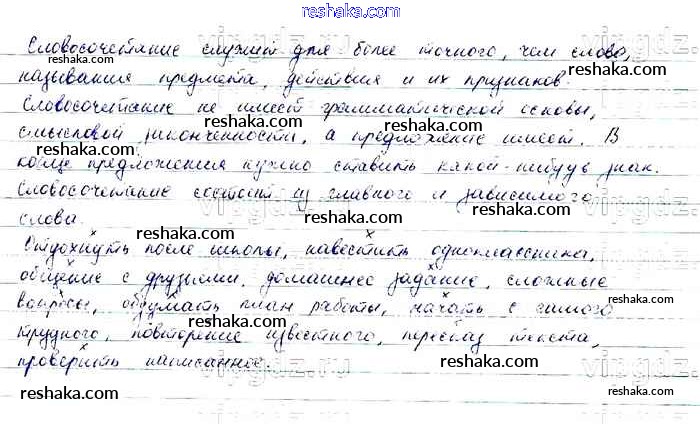 reshaka.com
Словосочетание служит для более точного, чем слово,
называния предмета, действия и их признаков.
Словосочетание не имеет грамматической основы,
смысловой законченности, а предложение имеет. В
конце предложения нужно ставить какой-нибудь знак.
Словосочетание состоит из главного и зависимого
слова.
Отдохнуть после школы, навестить одноклассника,
общение с друзьями, домашнее задание, сложные
вопросы, обдумать план работы, начать с самого
трудного, повторение известного, пересказ текста,
проверить написанное.